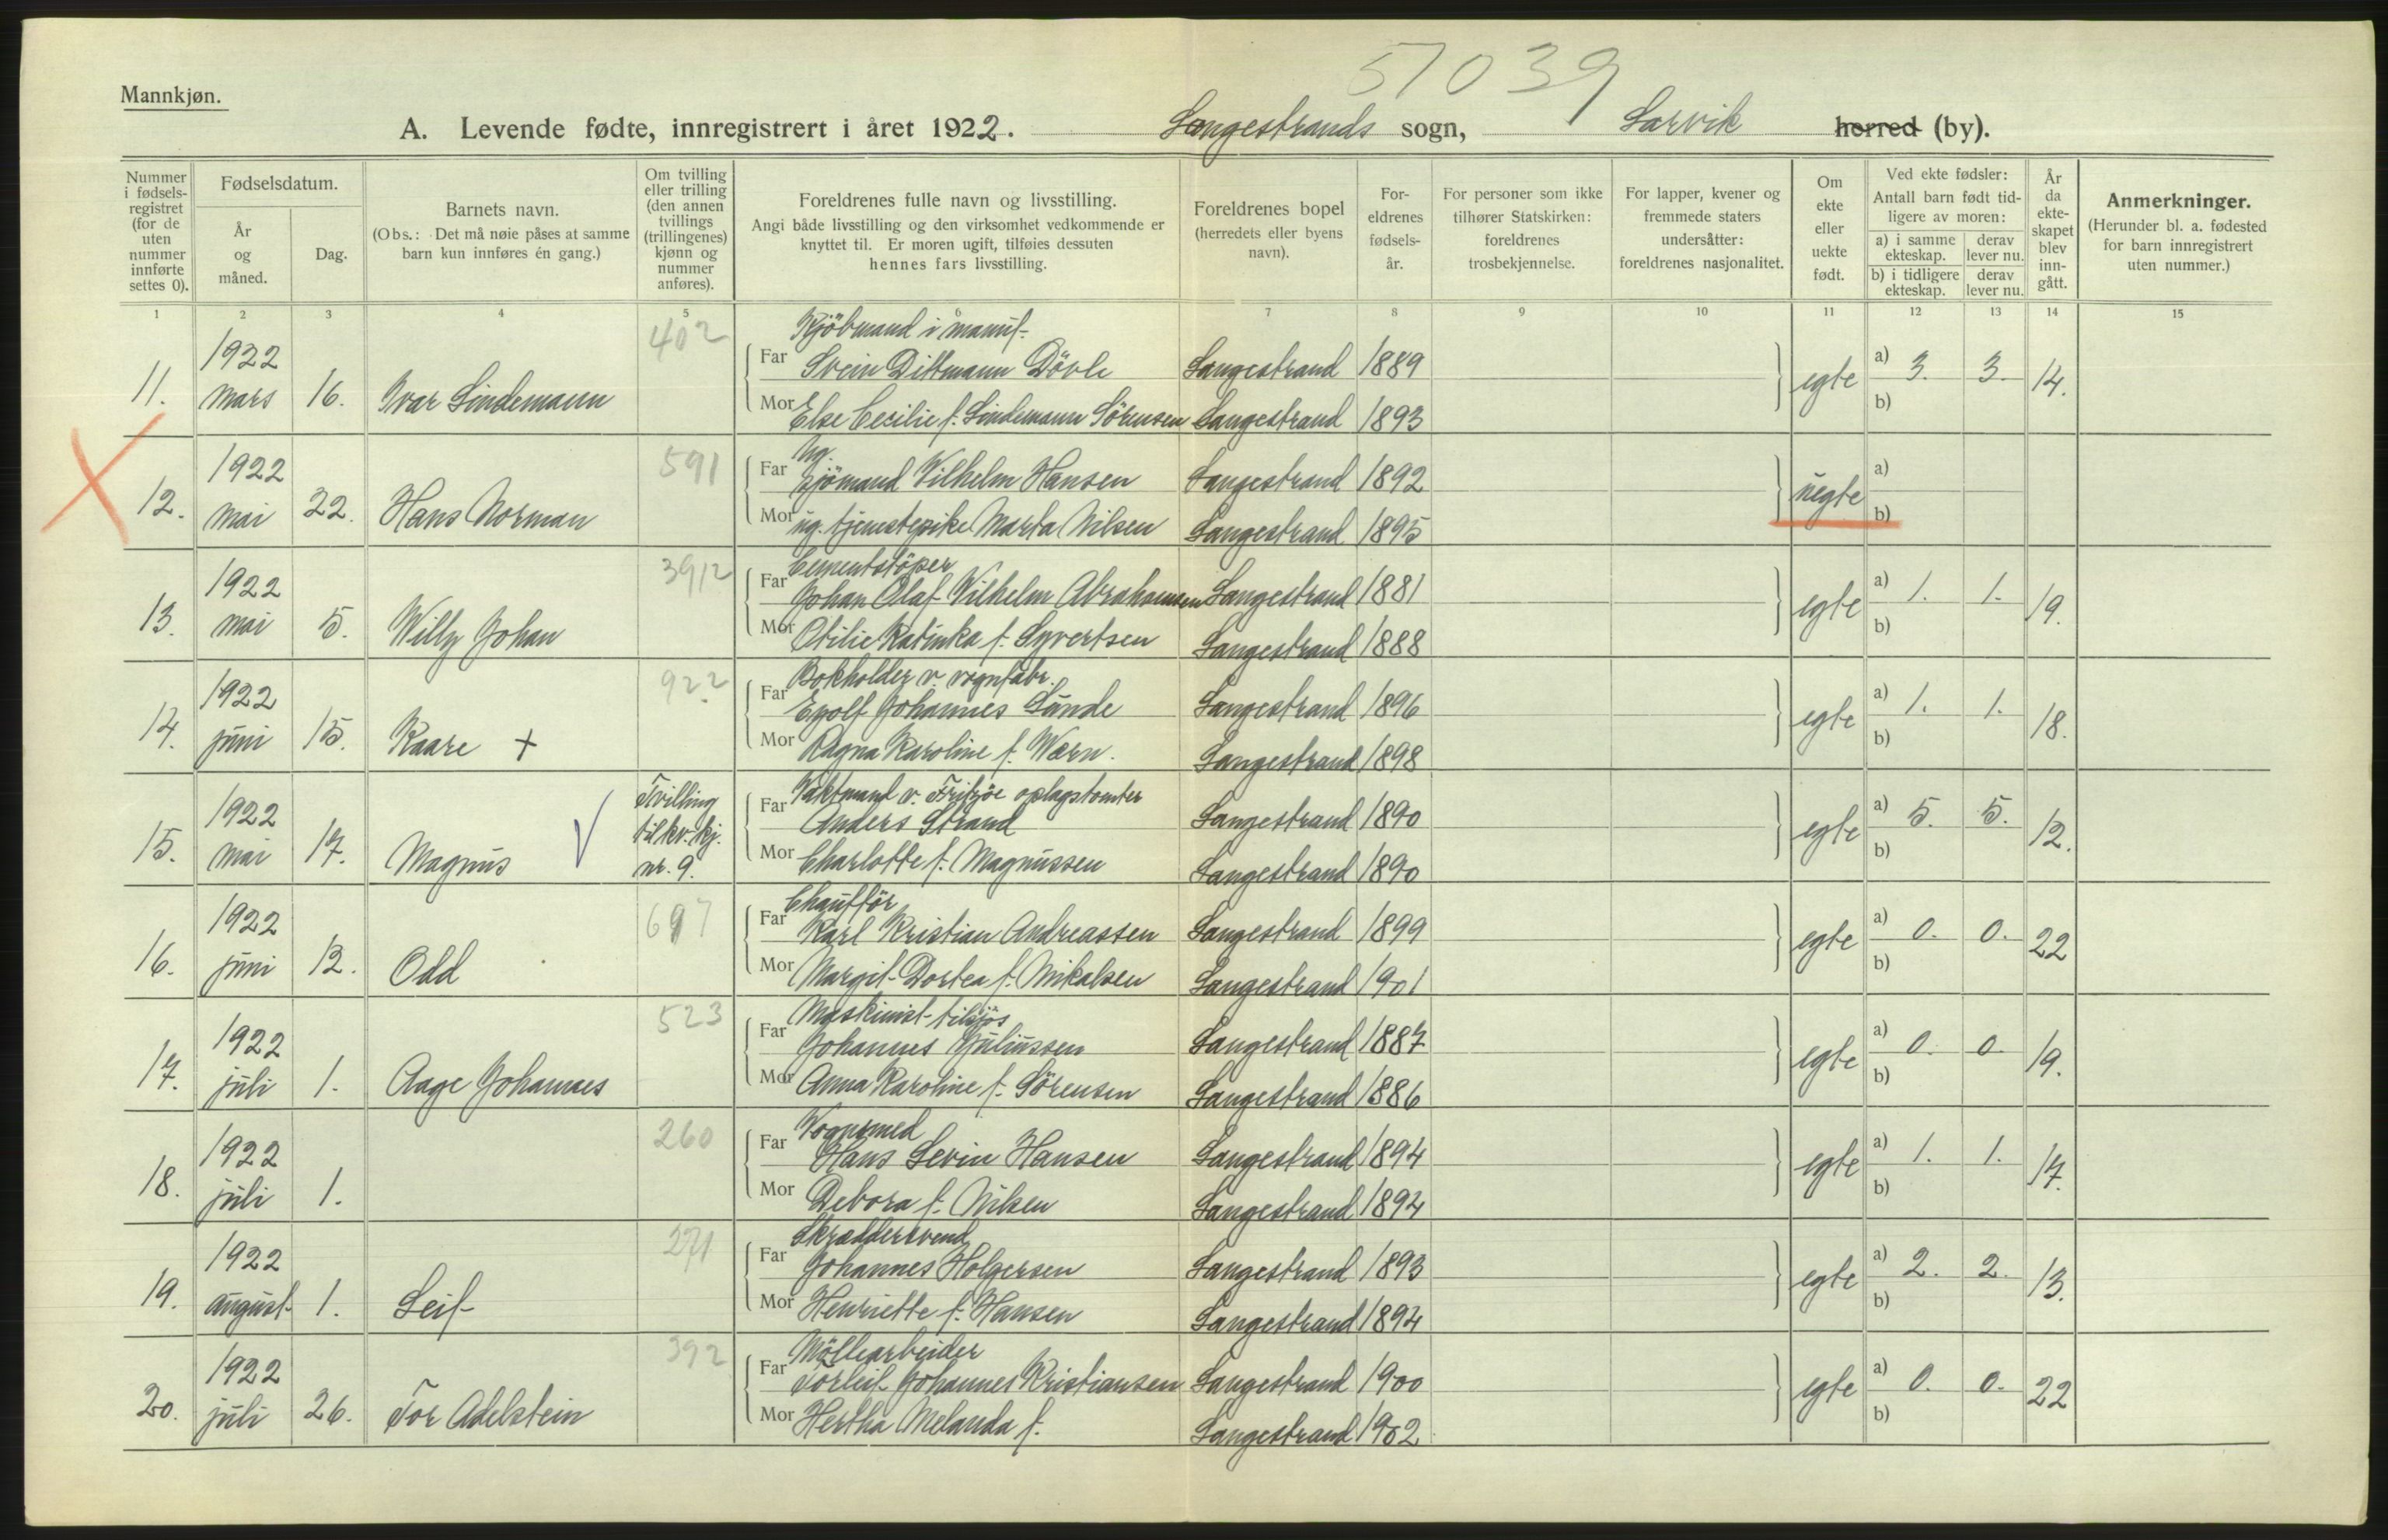 57039
Mannkjøn.
A. Levende fødte, innregistrert i året 1922. Langestrands sogn, Larvik herred (by).
Nummer i fødselsregistret (for de uten nummer innførte settes 0).
Fødselsdatum.
År og måned.
Dag.
Barnets navn.
(Obs.: Det må nøie påses at samme barn kun innføres én gang.)
Om tvilling eller trilling (den annen tvillings (trillingenes) kjønn og nummer anføres).
Foreldrenes fulle navn og livsstilling.
Angi både livsstilling og den virksomhet vedkommende er knyttet til. Er moren ugift, tilføies dessuten hennes fars livsstilling.
Foreldrenes bopel (herredets eller byens navn).
Foreldrenes fødselsår.
For personer som ikke tilhører Statskirken: foreldrenes trosbekjennelse.
For lapper, kvener og fremmede staters undersåtter: foreldrenes nasjonalitet.
Om ekte eller uekte født.
Ved ekte fødsler: Antall barn født tidligere av moren:
a) i samme ekteskap. derav lever nu.
b) i tidligere ekteskap. derav lever nu.
År da ekteskapet blev inngått.
Anmerkninger.
(Herunder bl. a. fødested for barn innregistrert uten nummer.)
1 2 3 4 5 6 7 8 9 10 11 12 13 14 15
402 Kjöbmand i manuf.
1922 Far Svein Dittmann Dövle Langestrand 1889 a) 3. 3.
11. mars 16. Ivar Lindemann egte 14.
Mor Else Cecilie f. Lindemann Sörensen Langestrand 1893 b)
591 Ug.
1922 Far Sjömand Vilhelm Hansen Langestrand 1892 a)
12. mai 22. Hans Norman uegte
Mor ug. tjenestepike Marta Nilsen Langestrand 1895 b)
3912 Cementstöper
1922 Far Johan Olaf Vilhelm Abrahamsen Langestrand 1881 a) 1. 1.
13. mai 5. Willy Johan egte 19.
Mor Otilie Katinka f. Syvertsen Langestrand 1888 b)
922 Bokholder v. vognfabr.
1922 Far Egolf Johannes Lunde Langestrand 1896 a) 1. 1.
14. juni 15. Kaare + egte 18.
Mor Ragna Karoline f. Wærn. Langestrand 1898 b)
Tvilling til kv.kj. nr. 9. Vaktmand v. Fritzöe oplagstomter
1922 Far Anders Strand Langestrand 1890 a) 5. 5.
15. mai 17. Magnus V egte 12.
Mor Charlotte f. Magnussen Langestrand 1890 b)
697 Chaufför
1922 Far Karl Kristian Andreassen Langestrand 1899 a) 0. 0.
16. juni 12. Odd egte 22
Mor Margit Dortea f. Mikalsen Langestrand 1901 b)
523 Maskinist tilsjös
1922 Far Johannes Juliussen Langestrand 1887 a) 0. 0.
17. juli 1. Aage Johannes egte 19.
Mor Anna Karoline f. Sörensen Langestrand 1886 b)
260 Vognsmed
1922 Far Hans Levin Hansen Langestrand 1894 a) 1. 1.
18. juli 1. egte 17.
Mor Debora f. Nilsen Langestrand 1894 b)
271 Skræddersvend
1922 Far Johannes Holgersen Langestrand 1893 a) 2. 2.
19. august 1. Leif egte 13.
Mor Henriette f. Hansen Langestrand 1894 b)
392 Möllearbeider
1922 Far Torleif Johannes Kristiansen Langestrand 1900 a) 0. 0.
20. juli 26. Tor Adelstein egte 22
Mor Hertha Melanda f. Langestrand 1902 b)